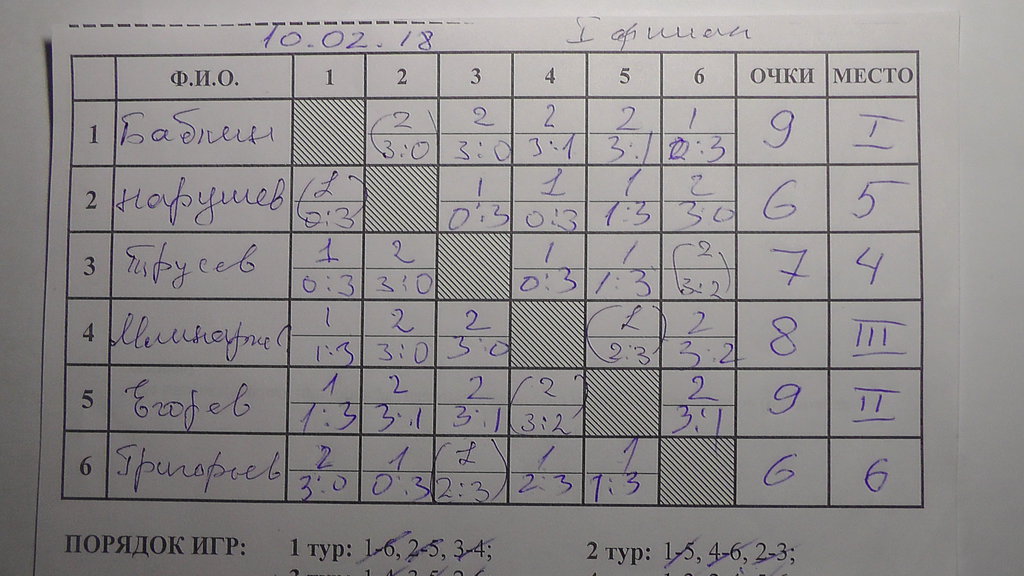 10.02.18 I финал
Ф.И.О. 1 2 3 4 5 6 ОЧКИ МЕСТО
1 Бабкин (2) 2 2 2 1 9 I
3:0 3:0 3:1 3:1 0:3
2 Нарушев (1) 1 1 1 2 6 5
0:3 0:3 0:3 1:3 3:0
3 Трусов 1 2 1 1 (2) 7 4
0:3 3:0 0:3 1:3 3:2
4 1 2 2 (1) 2 8 III
1:3 3:0 3:0 2:3 3:2
5 Егоров 1 2 2 (2) 2 9 II
1:3 3:1 3:1 3:2 3:1
6 Григорьев 2 1 (1) 1 1 6 6
3:0 0:3 2:3 2:3 1:3
ПОРЯДОК ИГР: 1 тур: 1-6, 2-5, 3-4; 2 тур: 1-5, 4-6, 2-3;